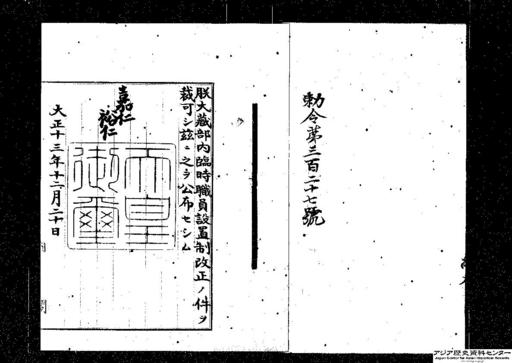 勅令第三百二十七號
朕大藏部内臨時職員設置制改正ノ件ヲ
裁可シ茲ニ之ヲ公布セシム
嘉仁
裕仁
天皇
御璽
大正十三年十二月二十日
アジア歴史資料センター
Japan Center for Asian Historical Records